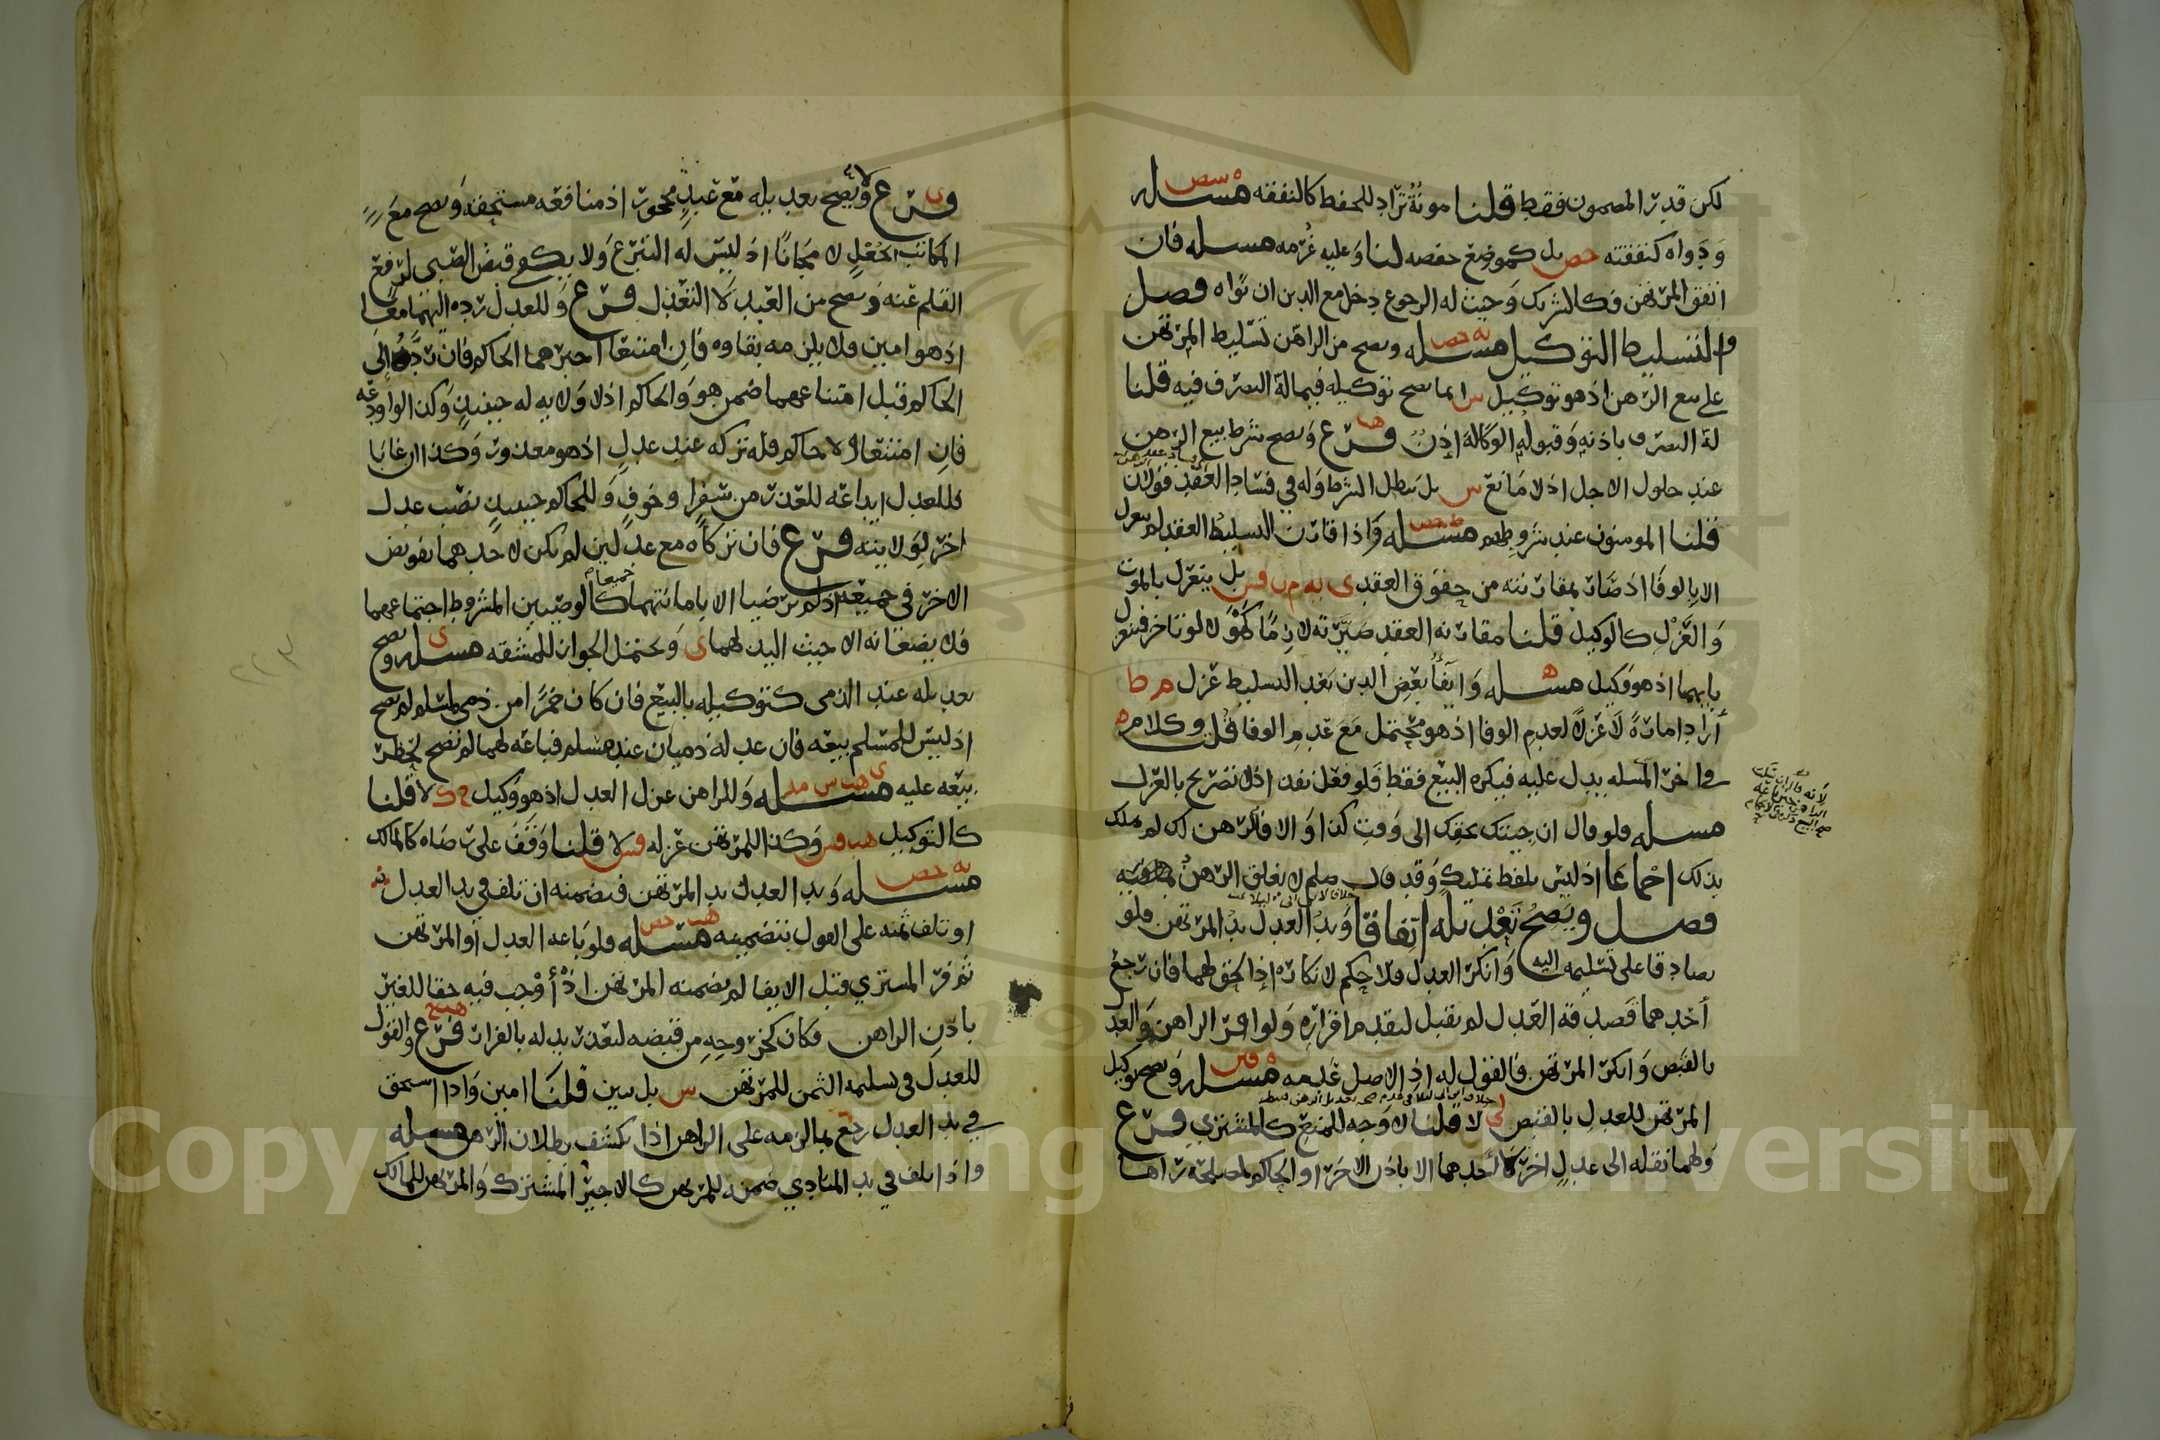 لكن قدر المضمون فقط قلنا مونة تراد للحفظ كالنفقه مسله
ودواه كنفقته حص بل كموضع حفصه لنا وعليه غرمه مسله فان
انفق المرتهن فكالشريك وحيث له الرجوع دخل مع الدين ان نواه فصل
والتسليط التوكيل مسله ويصح من الراهن تسليط المرتهن
على بيع الرهن اذ هو توكيل س انما يصح توكيله فيما له التصرف فيه قلنا
له التصرف باذنه وقبوله الوكالة اذن فرع ويصح شرط بيع الرهن
عند حلول الاجل اذ لا مانع س بل يبطل الشرط وله في فساد العقد قولان
قلنا المومنون عند شروطهم مسله واذا قارن التسليط العقد لم ينعزل
الا بالوفا اذ صار بمقارنته من حقوق العقد بل ينعزل بالموت
والعزل كالوكيل قلنا مقارنه العقد صيرته لازما كهو لا لو تاخر فينعزل
بايهما اذ هو وكيل مسله وايفا بعض الدين بعد التسليط عزل م ط
أراد اماره لا عزلا لعدم الوفا اذ هو محتمل مع عدم الوفا قلت وكلام م
في اخر المسله يدل عليه فيكره البيع فقط فلو فعل نفذ اذ لا تصريح بالعزل
مسله فلو قال ان جيتك بحقك الى وقت كذا والا فالرهن لك لم يملك
بذلك اجماعا اذ ليس بلفظ تمليك وقد قال صلعم لا يغلق الرهن بما فيه
فصل ويصح تعديله اتفاقا ويد العدل يد المرتهن فلو
تصادقا على تسليمه اليه وانكر العدل فلا حكم لانكاره اذ الحق لهما فان رجع
أحدهما فصدقه العدل لم يقبل لتقدم اقراره ولو اقر الراهن والعدل
بالقبض وانكر المرتهن فالقول له اذ الاصل عدمه مسله ويصح توكيل
المرتهن للعدل بالقبض لي لا قلنا لا وجه للمنع كالمشتري فرع
ولهما نقله الى عدل اخر لا أحدهما الا باذن الاخر او الحاكم لمصلحة راها
لانه قال ان
فرع ولا يصح تعديله مع عبد محجور اذ منافعه مستحقه ويصح مع
المكاتب بجعل لا مجانا اذ ليس له التبرع ولا يكفي قبض الصبي لرفع
القلم عنه ويصح من العبد لا التعديل فرع وللعدل رده اليهما معا
اذ هو امين فلا يلزمه بقاوه فان امتنعا اجبرهما الحاكم فان رده الى
الحاكم قبل امتناعهما ضمن هو والحاكم اذ لا ولايه له حينئذ وكذا لو اودعه
فان امتنعا ولا حاكم فله تركه عند عدل اذ هو معذور وكذا ان غابا
فللعدل ايداعه للعذر من سفر او خوف وللحاكم حينئذ نصب عدل
اخر لولايته فرع فان تركاه مع عدلين لم يكن لاحدهما تفويض
الاخر في جميعه اذ لم يرضيا الا بامانتهما جميعا كالوصيين المشروط اجتماعهما
فلا يضعانه الا حيث اليد لهما ى ويحتمل الجواز للمشقه مسله ويصح
تعديله عند الذمى كتوكيله بالبيع فان كان خمرا من ذمى لمسلم لم يصح
اذ ليس للمسلم بيعه فان عدله ذميان عند مسلم فباعه لهما لم يصح لحظر
بيعه عليه مسله وللراهن عزل العدل اذ هو وكيل لا قلنا
كالتوكيل وكذا للمرتهن عزله لا قلنا وقف على رضاه كالمالك
مسله ويد العدل يد المرتهن فيضمنه ان تلف في يد العدل
او تلف ثمنه على القول بتضمينه مسله فلو باعه العدل او المرتهن
ثم فر المشتري قبل الايفا لم يضمنه المرتهن اذ أوجب فيه حقا للغير
باذن الراهن فكان كخروجه من قبضه لتعذر بدله بالفرار فرع والقول
للعدل في تسليمه الثمن للمرتهن س بل يبين قلنا امين واذا استحق
في يد العدل رجع بما لزمه على الراهن اذا نكشف بطلان الرهن مسله
واذا تلف في يد المنادي ضمنه للمرتهن كالاجير المشترك والمرتهن للمالك